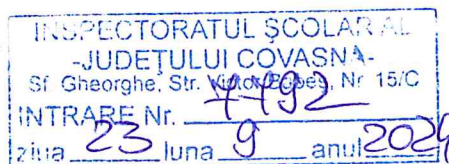 INSPECTORATUL ȘCOLAR AL
-JUDEȚULUI COVASNA-
Sf. Gheorghe, Str. Victor Babeș, Nr 15/C
INTRARE Nr. 4492
ziua 23 luna 9 anul 2024